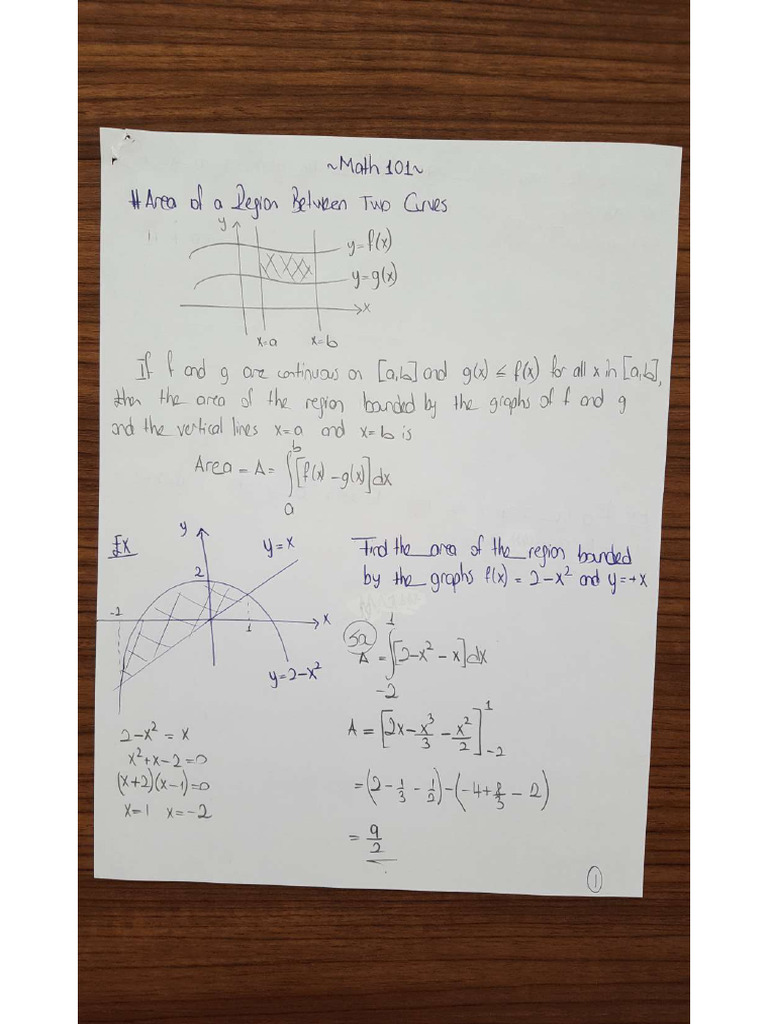 ~Math 101~
# Area of a Region Between Two Curves
y
y=f(x)
y=g(x)
x
x=a x=b
If f and g are continuous on [a,b] and g(x) ≤ f(x) for all x in [a,b],
then the area of the region bounded by the graphs of f and g
and the vertical lines x=a and x=b is
Area = A = ∫_a^b [f(x) - g(x)] dx
Ex
y
y=x
2
-2
1
x
y=2-x²
2-x² = x
x²+x-2=0
(x+2)(x-1)=0
x=1 x=-2
Find the area of the region bounded
by the graphs f(x) = 2-x² and y=+x
A = ∫_-2^1 [2-x²-x] dx
A = [2x - x³/3 - x²/2]_-2^1
= (2 - 1/3 - 1/2) - (-4 + 8/3 - 2)
= 9/2
1